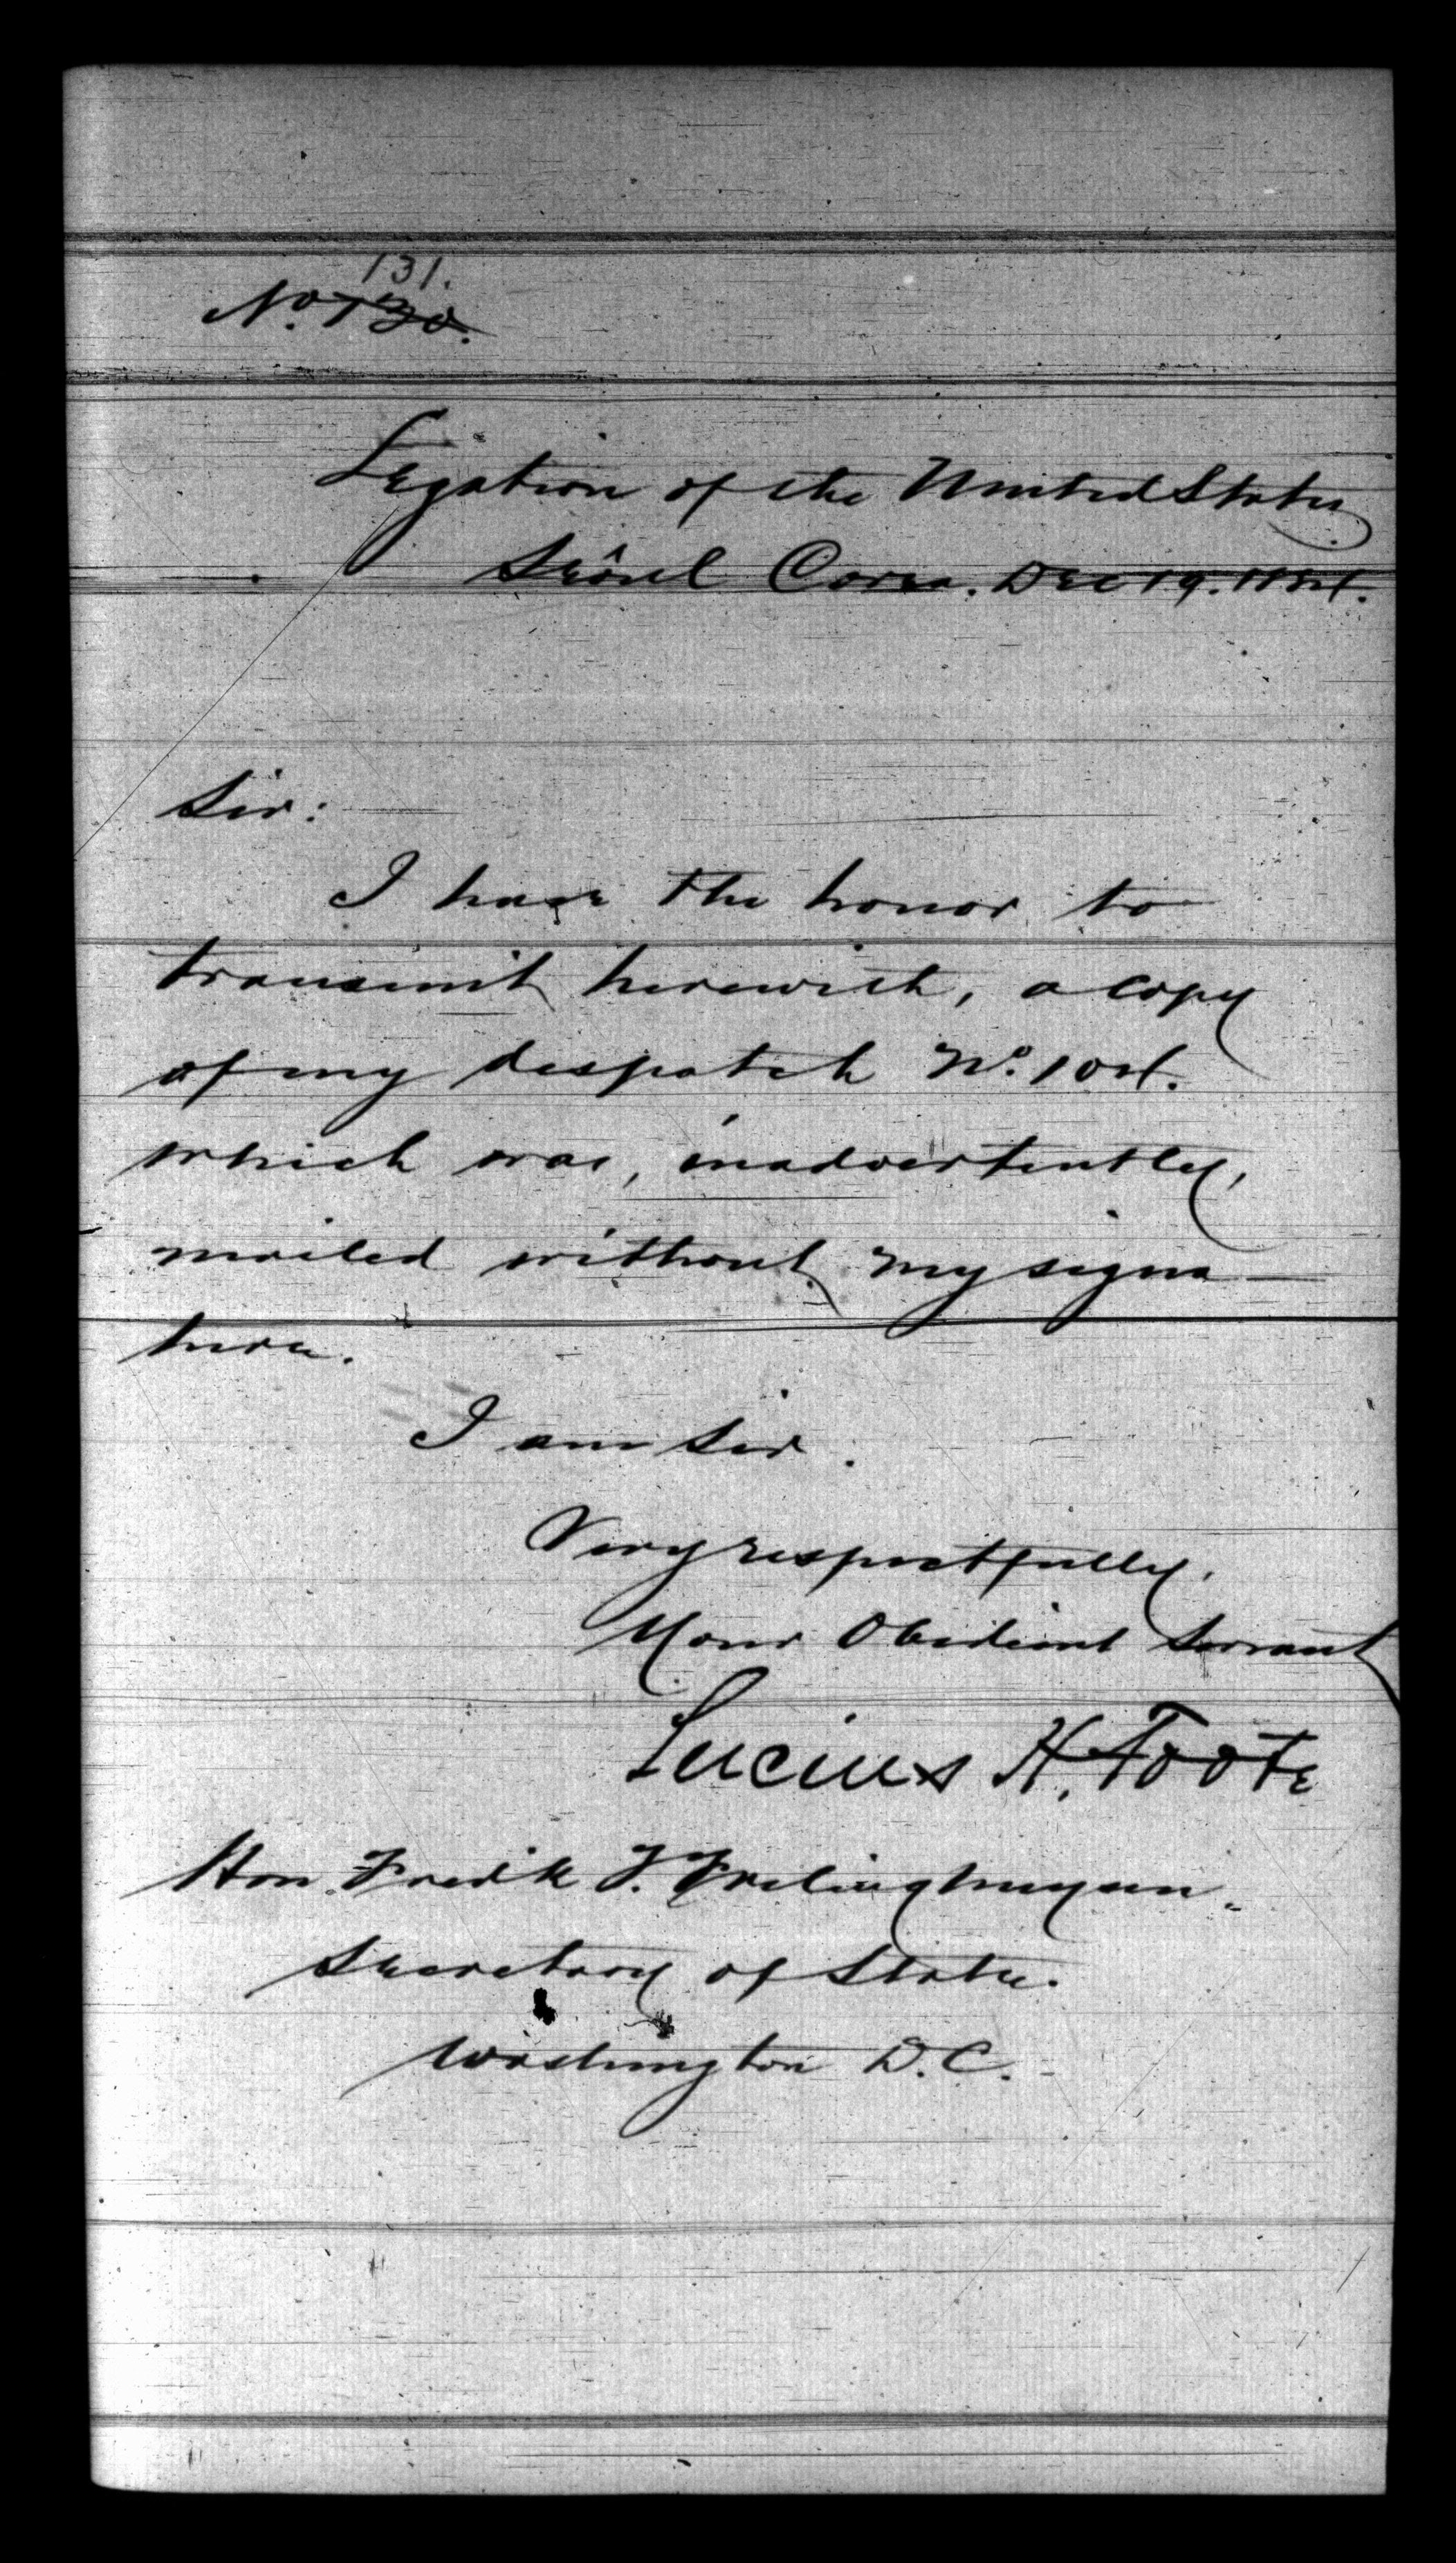 131.
No. 130.
Legation of the United States
Seôul Corea. Dec 19. 1884.
Sir:
I have the honor to
transmit herewith, a copy
of my despatch No. 104.
which was, inadvertently,
mailed without my signa-
ture.
I am Sir.
Very respectfully.
Your Obedient Servant
Lucius H. Foote
Hon. Fredk T. Frelinghuysen.
Secretary of State.
Washington D.C.